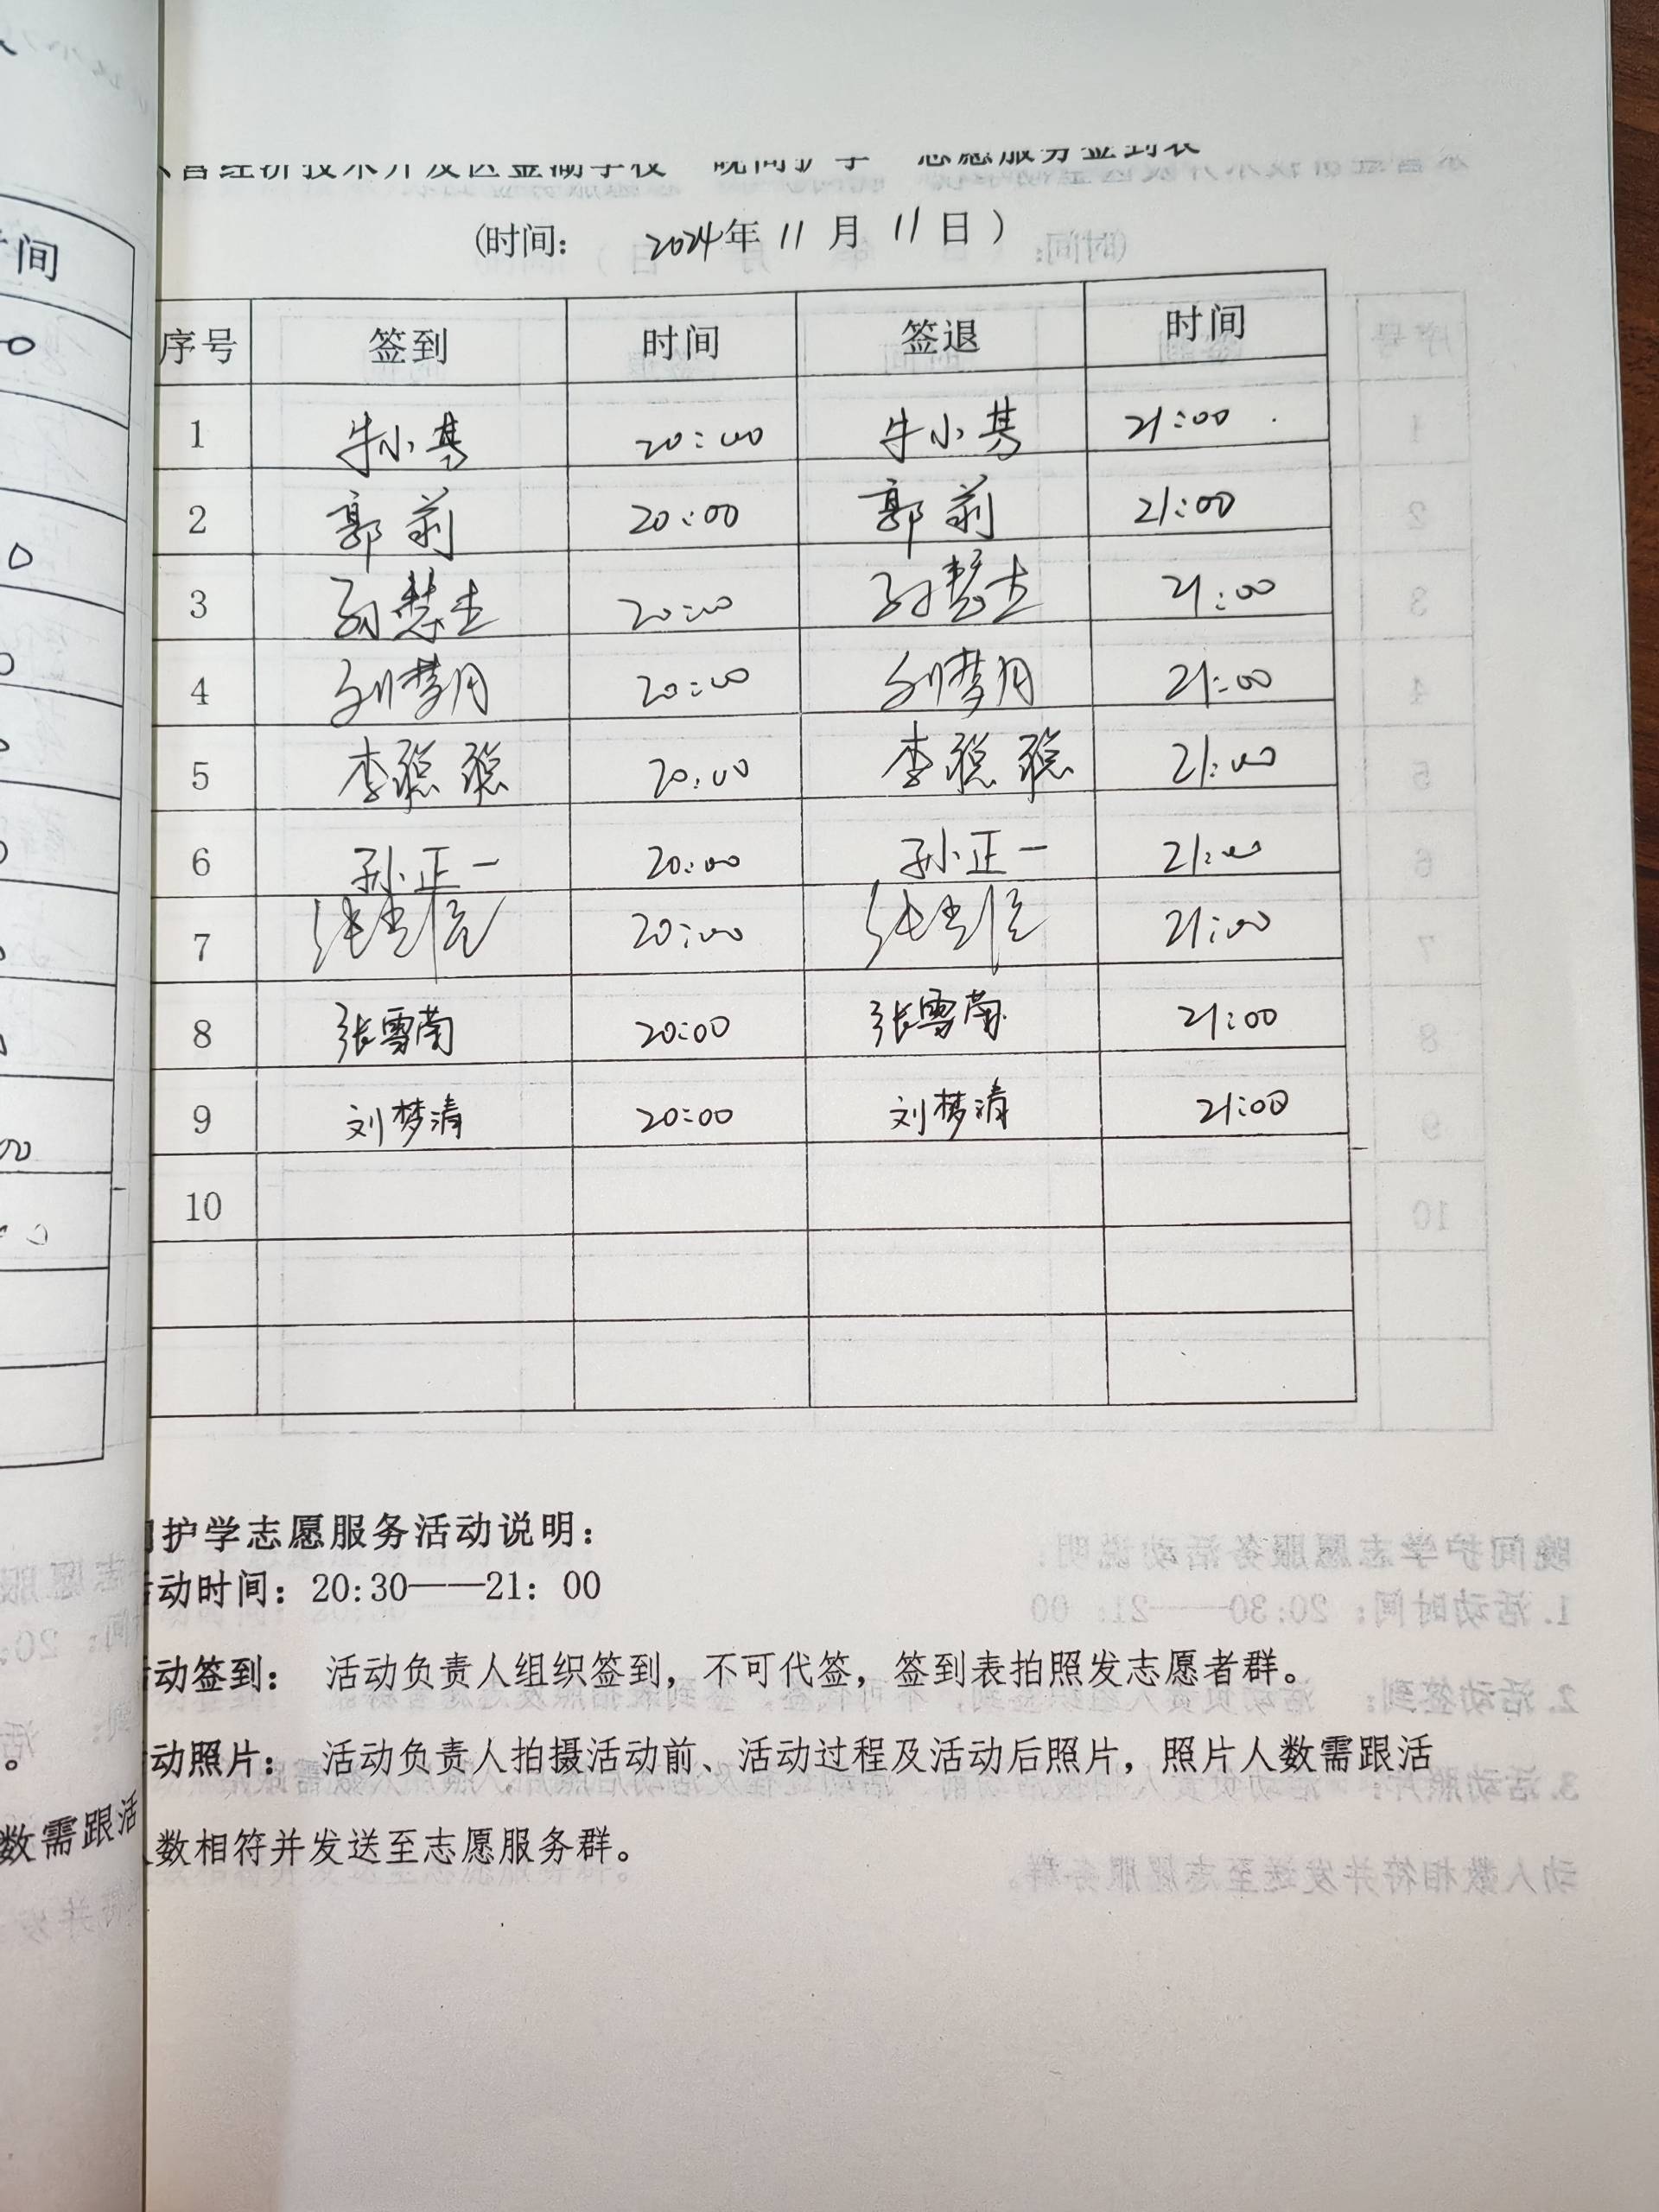 营经济技术开发区金湖学校 晚间护学 志愿服务签到表
(时间: 2024年 11 月 11 日 )
序号 签到 时间 签退 时间
1 牛小 20:00 牛小 21:00
2 郭莉 20:00 郭莉 21:00
3 20:00 21:00
4 刘梦月 20:00 刘梦月 21:00
5 李聪聪 20:00 李聪聪 21:00
6 孙正一 20:00 孙正一 21:00
7 20:00 21:00
8 张雪菊 20:00 张雪菊 21:00
9 刘梦清 20:00 刘梦清 21:00
10
护学志愿服务活动说明:
动时间: 20:30——21: 00
动签到: 活动负责人组织签到，不可代签，签到表拍照发志愿者群。
动照片: 活动负责人拍摄活动前、活动过程及活动后照片，照片人数需跟活
数相符并发送至志愿服务群。
间
数需跟活